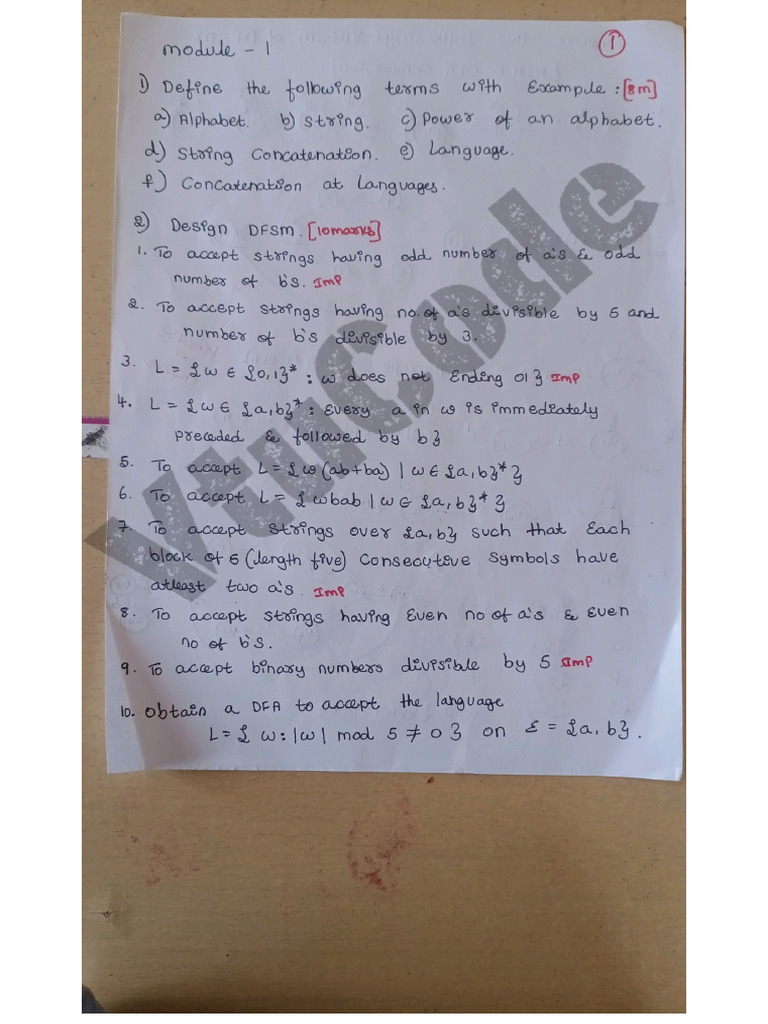 1
module - 1
1) Define the following terms with Example : [8m]
a) Alphabet. b) String. c) Power of an alphabet.
d) String Concatenation. e) Language.
f) Concatenation at Languages.
2) Design DFSM. [10marks]
1. To accept strings having odd number of a's & odd
number of b's. Imp
2. To accept strings having no. of a's divisible by 5 and
number of b's divisible by 3.
3. L = {w ∈ {0,1}* : w does not Ending 01} Imp
4. L = {w ∈ {a,b}* : Every a in w is immediately
preceded & followed by b}
5. To accept L = {w(ab+ba) | w ∈ {a,b}*}
6. To accept L = {wbab | w ∈ {a,b}*}
7. To accept strings over {a,b} such that Each
block of 5 (length five) Consecutive Symbols have
atleast two a's. Imp
8. To accept strings having Even no of a's & Even
no of b's.
9. To accept binary numbers divisible by 5 Imp
10. Obtain a DFA to accept the language
L = { w : |w| mod 5 ≠ 0 } on Σ = {a, b}.
VtuCode